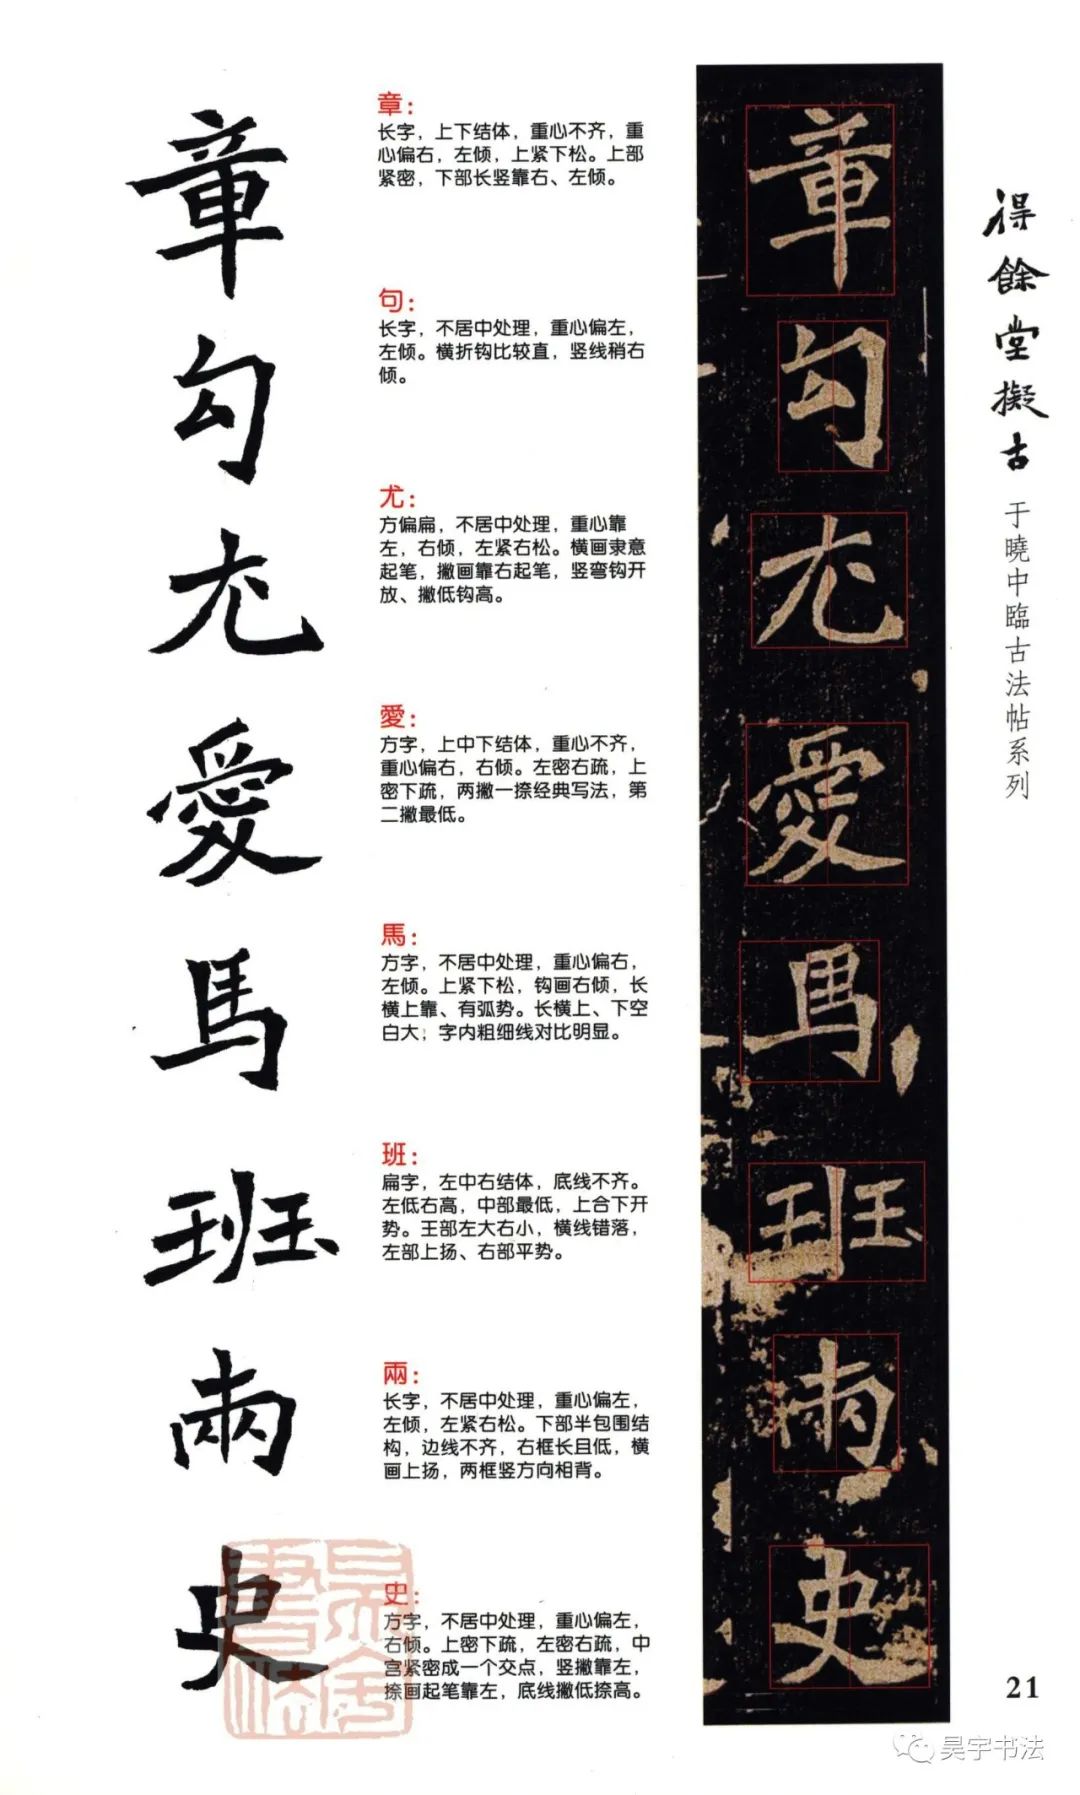 章
句
尤
愛
馬
班
兩
史
章：
长字，上下结体，重心不齐，重
心偏右，左倾，上紧下松。上部
紧密，下部长竖靠右、左倾。
句：
长字，不居中处理，重心偏左，
左倾。横折钩比较直，竖线稍右
倾。
尤：
方偏扁，不居中处理，重心靠
左，右倾，左紧右松。横画隶意
起笔，撇画靠右起笔，竖弯钩开
放、撇低钩高。
愛：
方字，上中下结体，重心不齐，
重心偏右，右倾。左密右疏，上
密下疏，两撇一捺经典写法，第
二撇最低。
馬：
方字，不居中处理，重心偏右，
左倾。上紧下松，钩画右倾，长
横上靠、有弧势。长横上、下空
白大；字内粗细线对比明显。
班：
扁字，左中右结体，底线不齐。
左低右高，中部最低，上合下开
势。王部左大右小，横线错落，
左部上扬、右部平势。
兩：
长字，不居中处理，重心偏左，
左倾，左紧右松。下部半包围结
构，边线不齐，右框长且低，横
画上扬，两框竖方向相背。
史：
方字，不居中处理，重心偏左，
右倾。上密下疏，左密右疏，中
宫紧密成一个交点，竖撇靠左，
捺画起笔靠左，底线撇低捺高。
章
句
尤
愛
馬
班
兩
史
得餘堂擬古
于曉中臨古法帖系列
21
昊宇书法